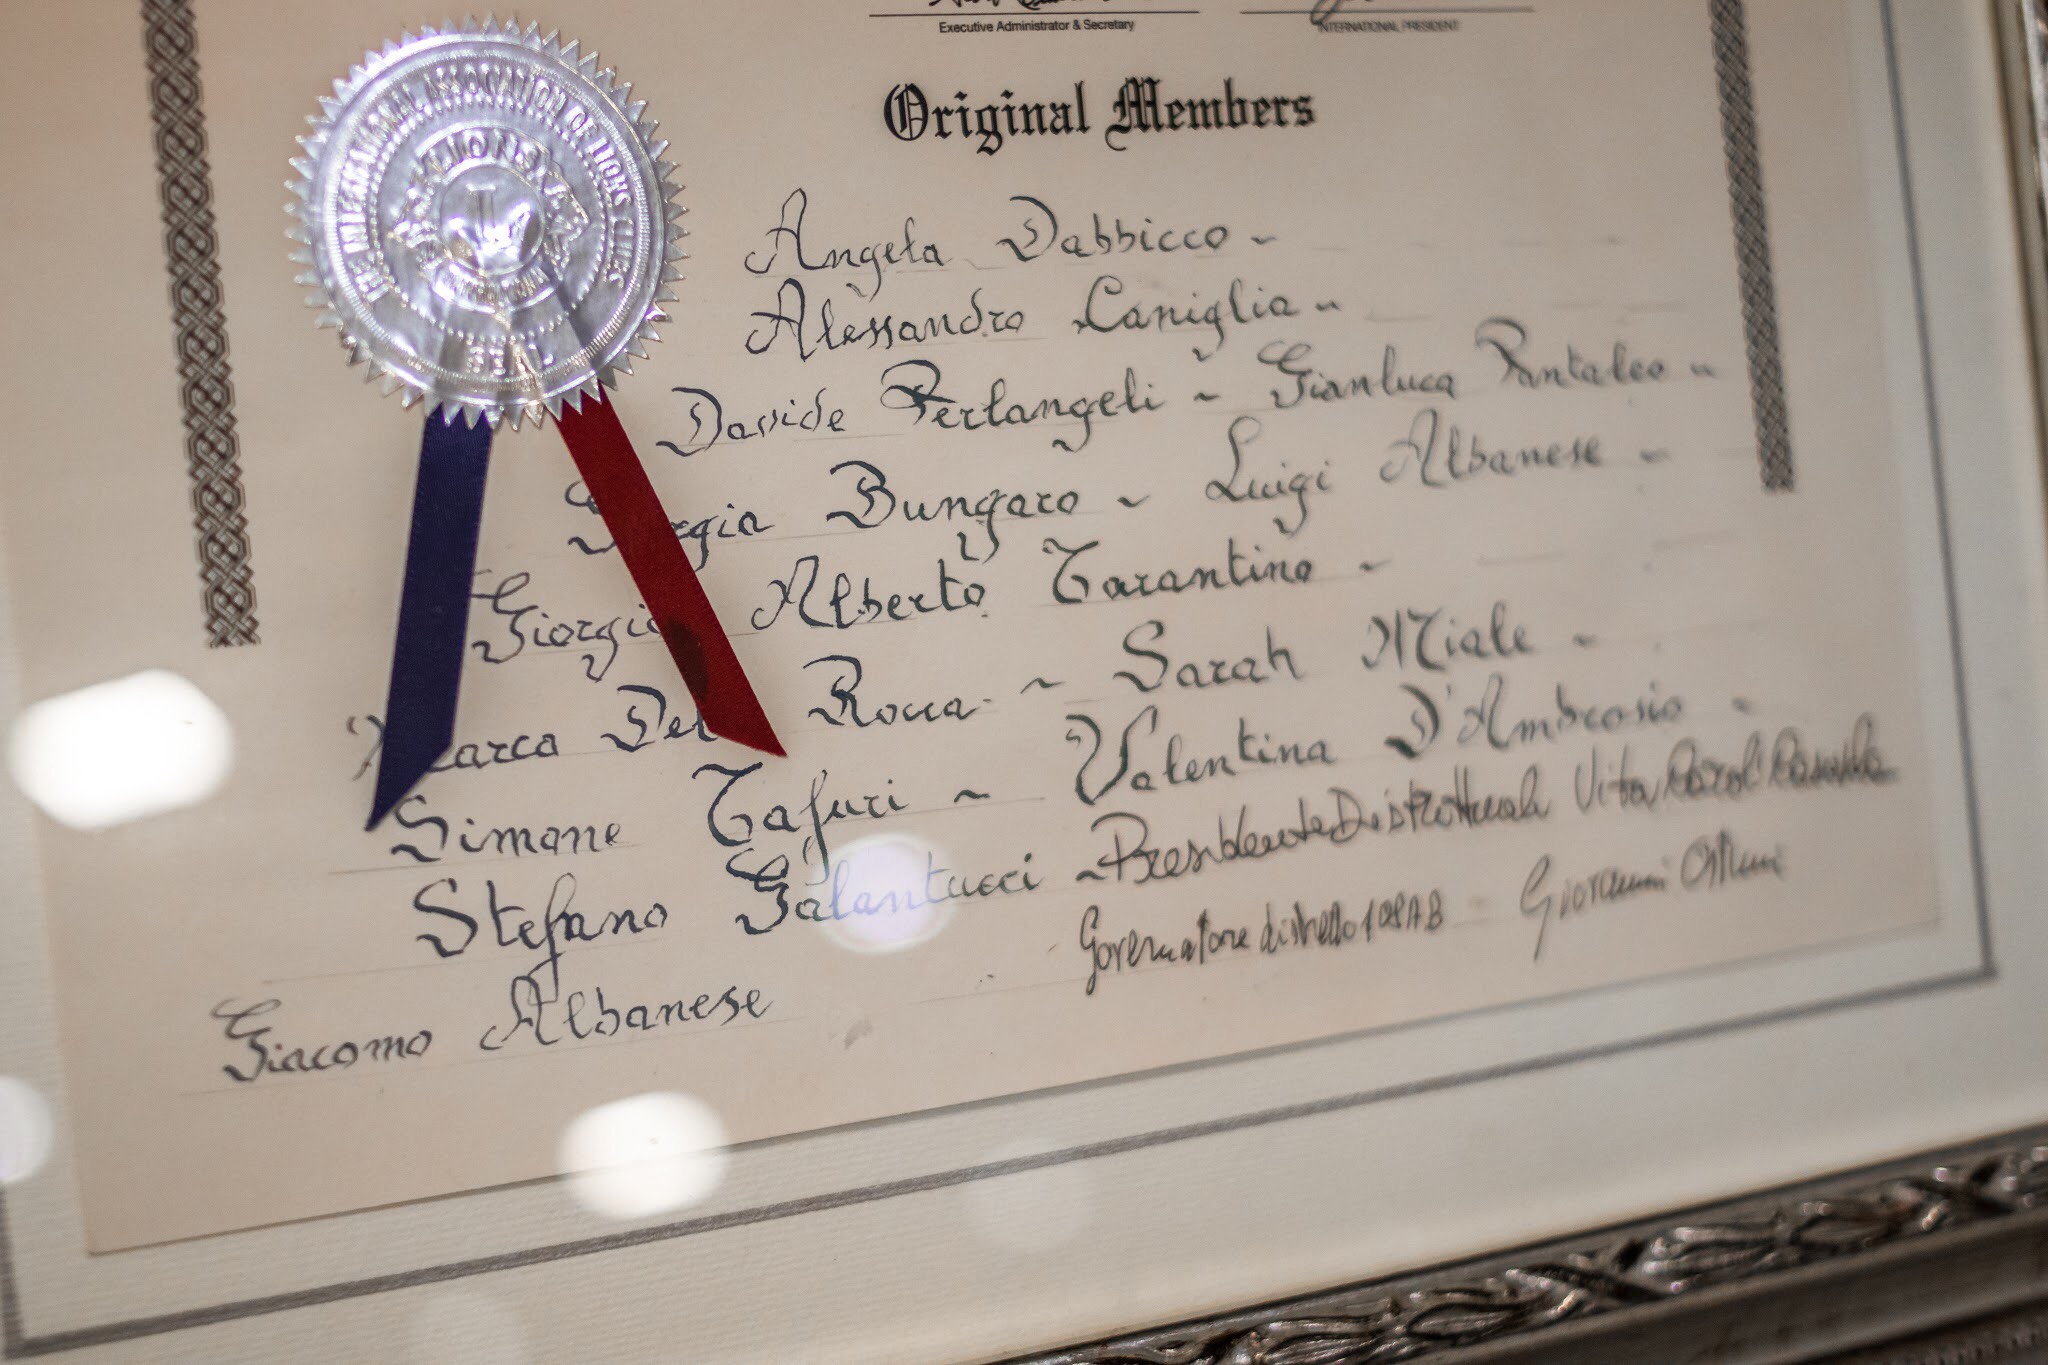 Executive Administrator & Secretary
INTERNATIONAL PRESIDENT
THE INTERNATIONAL ASSOCIATION OF LIONS CLUBS
LIONS
L
INTERNATIONAL
SEAL
Original Members
Angela Dabbicco ~
Alessandro Caniglia ~
Davide Perlangeli ~ Gianluca Pantaleo ~
Bungaro ~ Luigi Albanese ~
Giorgio Alberto Tarantino ~
Marco Del Rocca ~ Sarah Miale ~
Simone Tafuri ~ Valentina D'Ambrosio ~
Stefano Galantucci ~ Presidente Distrettuale Vito
Giacomo Albanese
Governatore distretto 108AB - Giovanni Ostuni